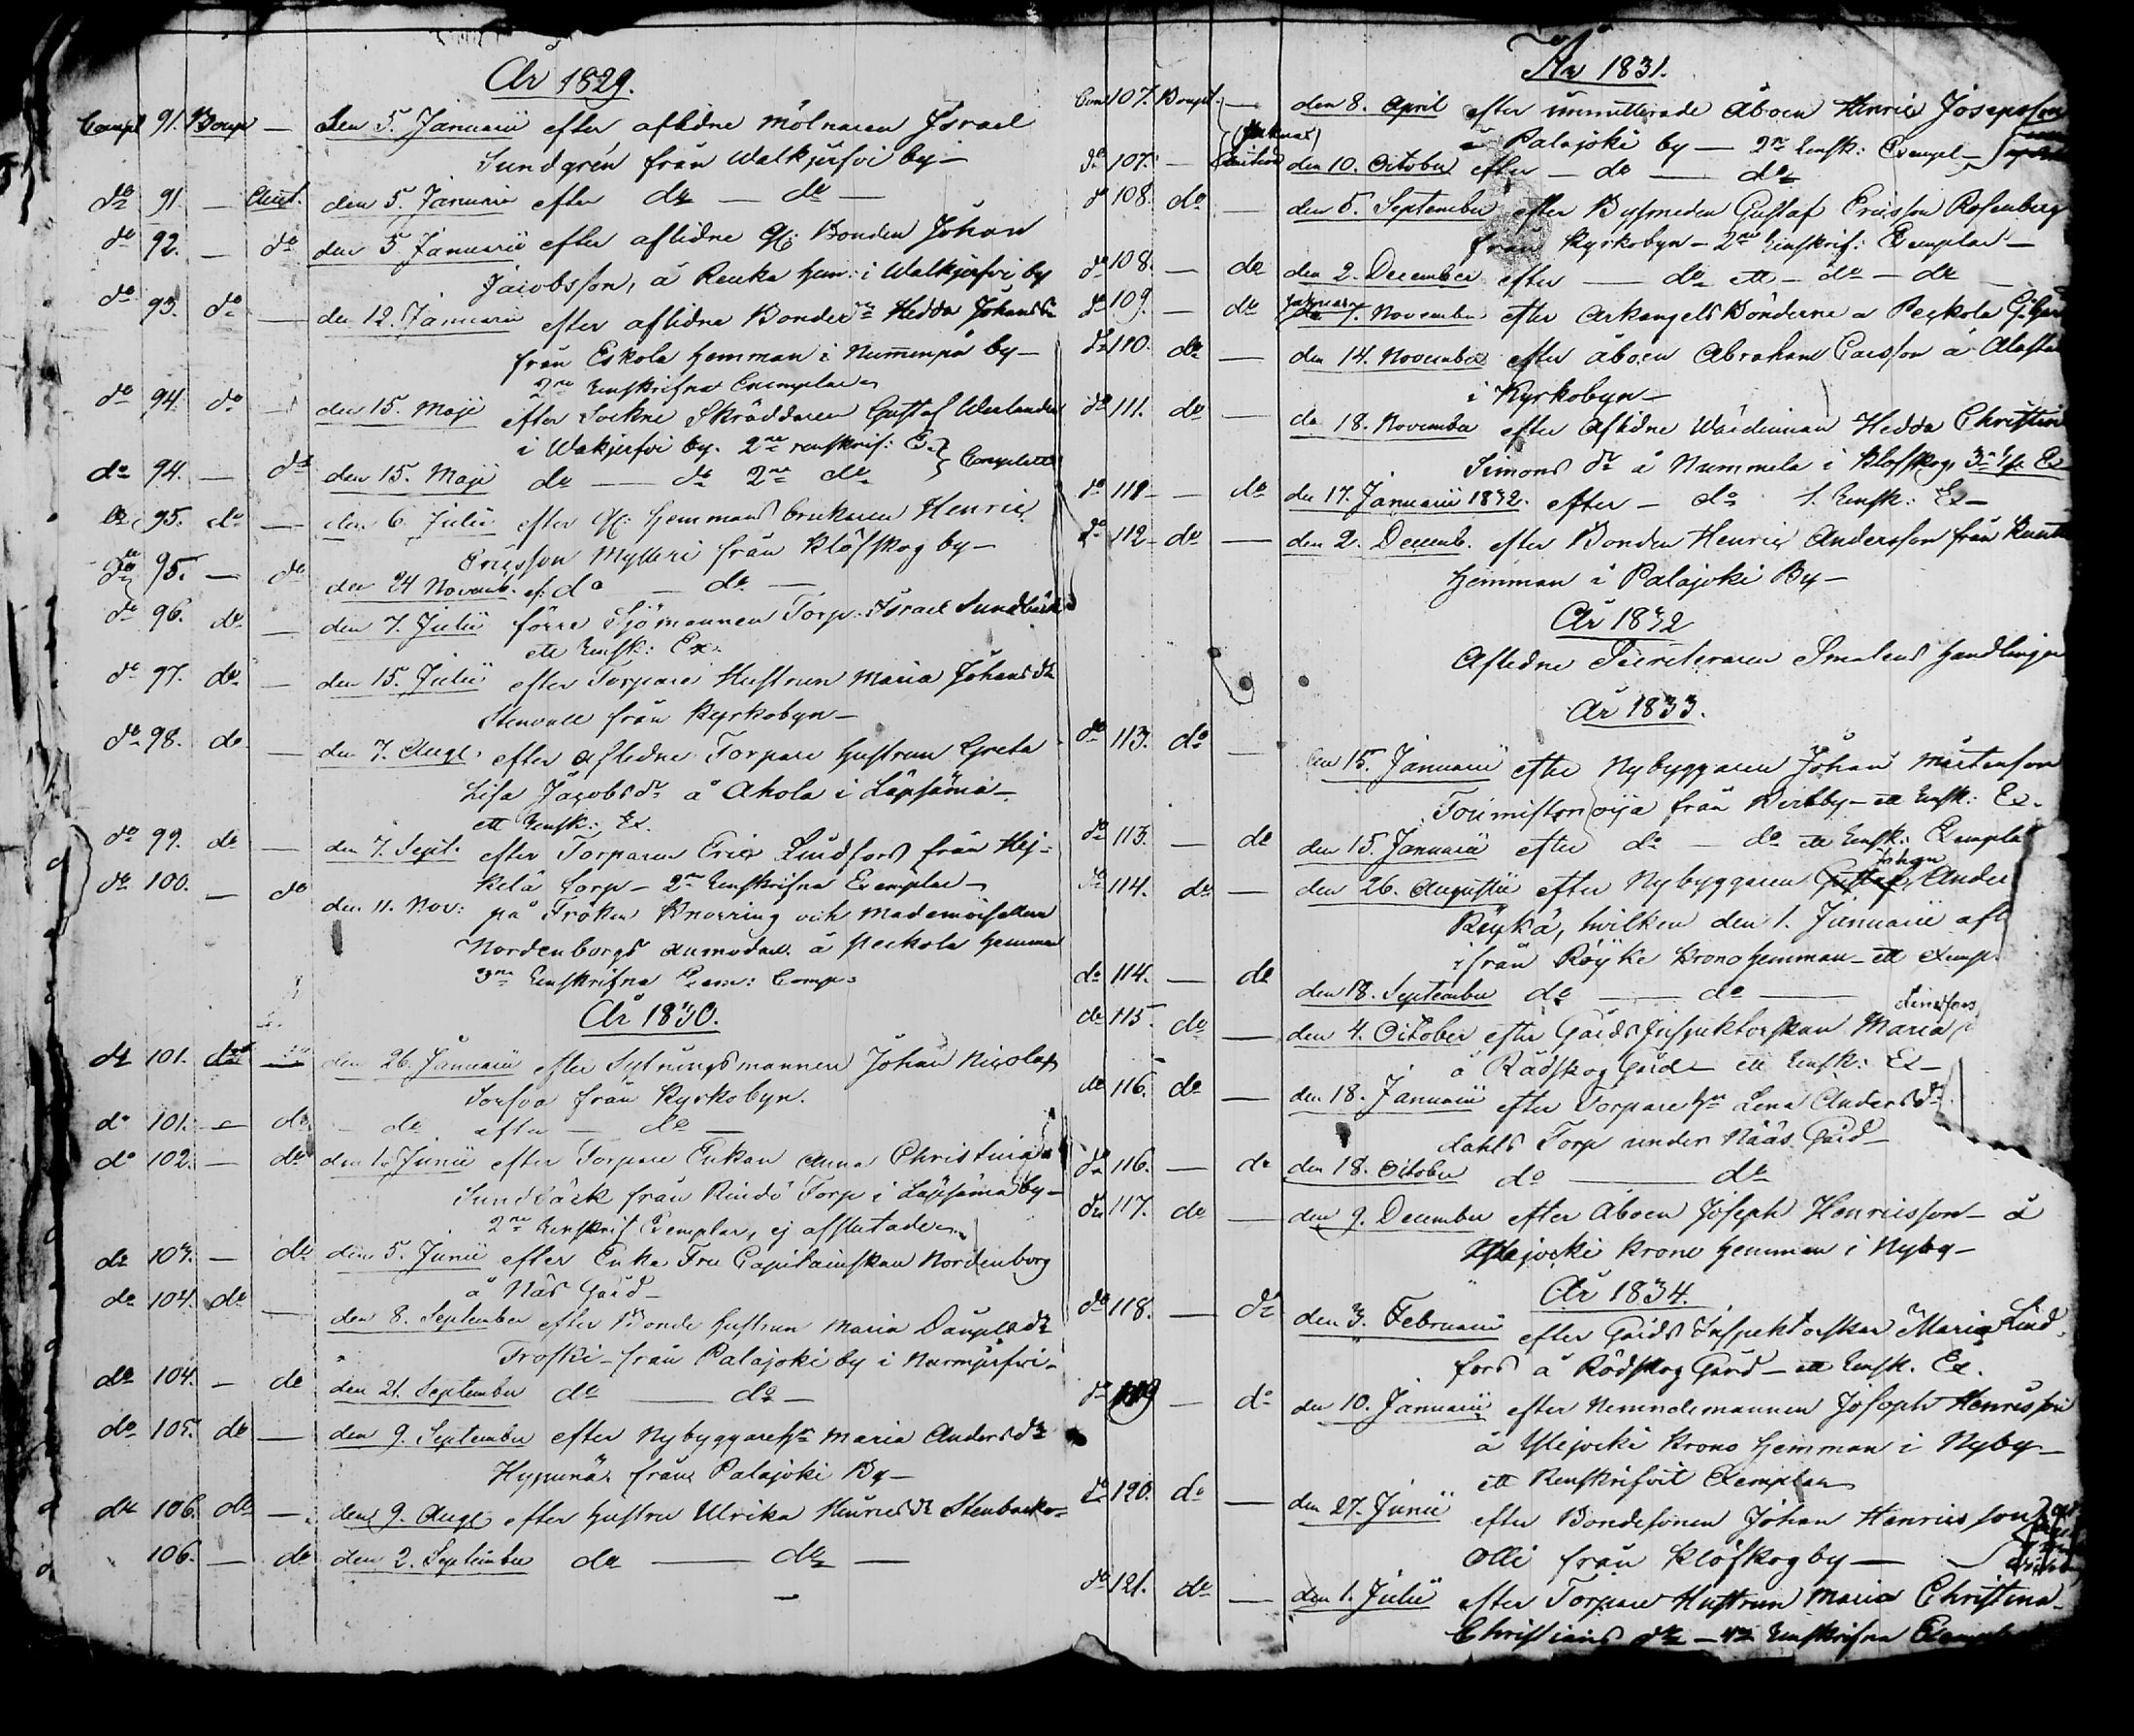 År 1829.
Compl 91. Boupt — den 5. Januarii efter aflidne Mölnaren Israel
Sundgrén från Walkjerfvi by —
do 91 — Auct. den 5. Januarii efter do — do —
do 92. — do den 5 Januarii efter aflidne Bonden Johan
Jacobsson, å Reuka Hem: i Walkjerfvi by
do 93. do — den 12. Januarii efter aflidna Bonde Hedda Johansdr
från Eskola Hemman i Nummenpä by —
2ne Renskrifna Exemplar
do 94. do — den 15. Maji efter Sockne Skräddaren Gustaf Werlander
i Wakjerfvi by. 2ne renskrif: Ex.
do 94. — do den 15. Maji do — do 2ne do Complette
do 95. do — den 6. Julii efter Hemmans brukaren Henric
Ericsson Mylleri från Klöfskog by —
do 95. — do den 24 Novemb. ef: do — do —
do 96. do — den 7. Julii förre Sjömannen Torp: Israel Sundbäck
ett Rensk: Ex.
do 97. do — den 15. Julii efter Torpare Hustrun Maria Johansdr
Stenvall från Kyrkobyn —
do 98. do — den 7. Aug. efter aflidne Torpare Hustrun Greta
Lisa Jacobsdr å Ahola i Läpsämä —
ett Rensk: Ex.
do 99. do — den 7. Sept. efter Torparen Eric Lindfors från Hej-
kelä torp — 2ne Renskrifna Exemplar —
do 100. — do den 11. Nov: på Fröken Knorring och Mademoisellen
Nordenborgs anmodan å Peckola Hemman
3ne Renskrifna Exem: Comp:
År 1830.
do 101. do — den 26. Januarii efter Sytningsmannen Johan Nicolas
Sorfva från Kyrkobyn.
do 101. — do — do efter — do —
do 102. — do den 1. Junii efter Torpare Enkan Anna Christina
Sundbäck från Rindö Torp i Läpsämä by —
2ne Renskrif Exemplar, ej afslutade
do 103. — do den 5. Junii efter Enke Fru Capitainskan Nordenborg
å Näs Gård —
do 104. do — den 8. September efter Bonde Hustrun Maria
Froski — från Palajoki by i Nurmijerfvi —
do 104. — do den 21. September do — do —
do 105. do — den 9. September efter Nybyggare Maria Andersdr
Hypenä från Palajoki By —
do 106. do — den 9. Aug. efter Hustru Ulrika Henricsdr Stenbacka
106. — do den 2. September do — do —
År 1831.
107. Boupt. — den 8. April efter Åboen Henric Josepsson
Palajoki by — 2ne Rensk: Exempl —
do 107. — den 10. October efter — do — do
do 108. do — den 5. September efter Bysmeden Gustaf Ericsson Rosenberg
från Kyrkobyn — 2ne Renskrif: Exemplar —
do 108. — do den 2. December efter — do ett — do — do
do 109. — do 7. November efter Arkangels Bönderne å Peckola
do 110. do — den 14. November efter åboen Abraham å
i Kyrkobyn —
do 111. do — den 18. November efter Aflidne Wärdinnan Hedda Christin
Simons dr å Nummela i Klöfskog, Ex
do 111 — — do den 17. Januarii 1832. efter — do 1. Rensk: Ex —
do 112 — do — den 2. Decemb. efter Bonden Henric Andersson från
Hemman i Palajoki By —
År 1832
Aflidne Handlingar
År 1833.
do 113. do — den 15. Januarii efter Nybyggaren Johan Mårtensson
från — ett Rensk: Ex.
do 113 — do den 15. Januarii efter do — do ett Rensk: Exemplar
Johan
do 114. do — den 26. Augusti efter Nybyggaren Gustaf Ander
Röykä, hvilken den 1. Januarii afl
ifrån Röykä Krono Hemman — ett exemp.
do 114. — do den 18. September do — do —
do 115. do — den 4. October efter Gårds Inspektorskan Maria Lindfors
å Rödskog Gård — ett Rensk: Ex —
do 116. do — den 18. Januarii efter Torpare Lena Andersdr
dahls Torp under Nääs Gård —
do 116. — do den 18. October do — do
do 117. do — den 9. December efter Åboen Joseph Henricsson — å
Ylejocki Krono Hemman i Nyby —
År 1834.
do 118. — do den 3. Februarii efter Gårds Inspektorskan Maria Lind-
fors å Rödskog Gård — ett Rensk. Ex.
do 119 — do den 10. Januarii efter Nemndemannen Joseph Henricsson
å Ylejocki Krono Hemman i Nyby —
ett Renskrifvit Exemplar
do 120. do — den 27. Junii efter Bondesonen Johan Henricsson
Olli från Klöfskog by —
do 121. do — den 1. Julii efter Torpare Hustrun Maria Christina
Christians dr — Renskrifna